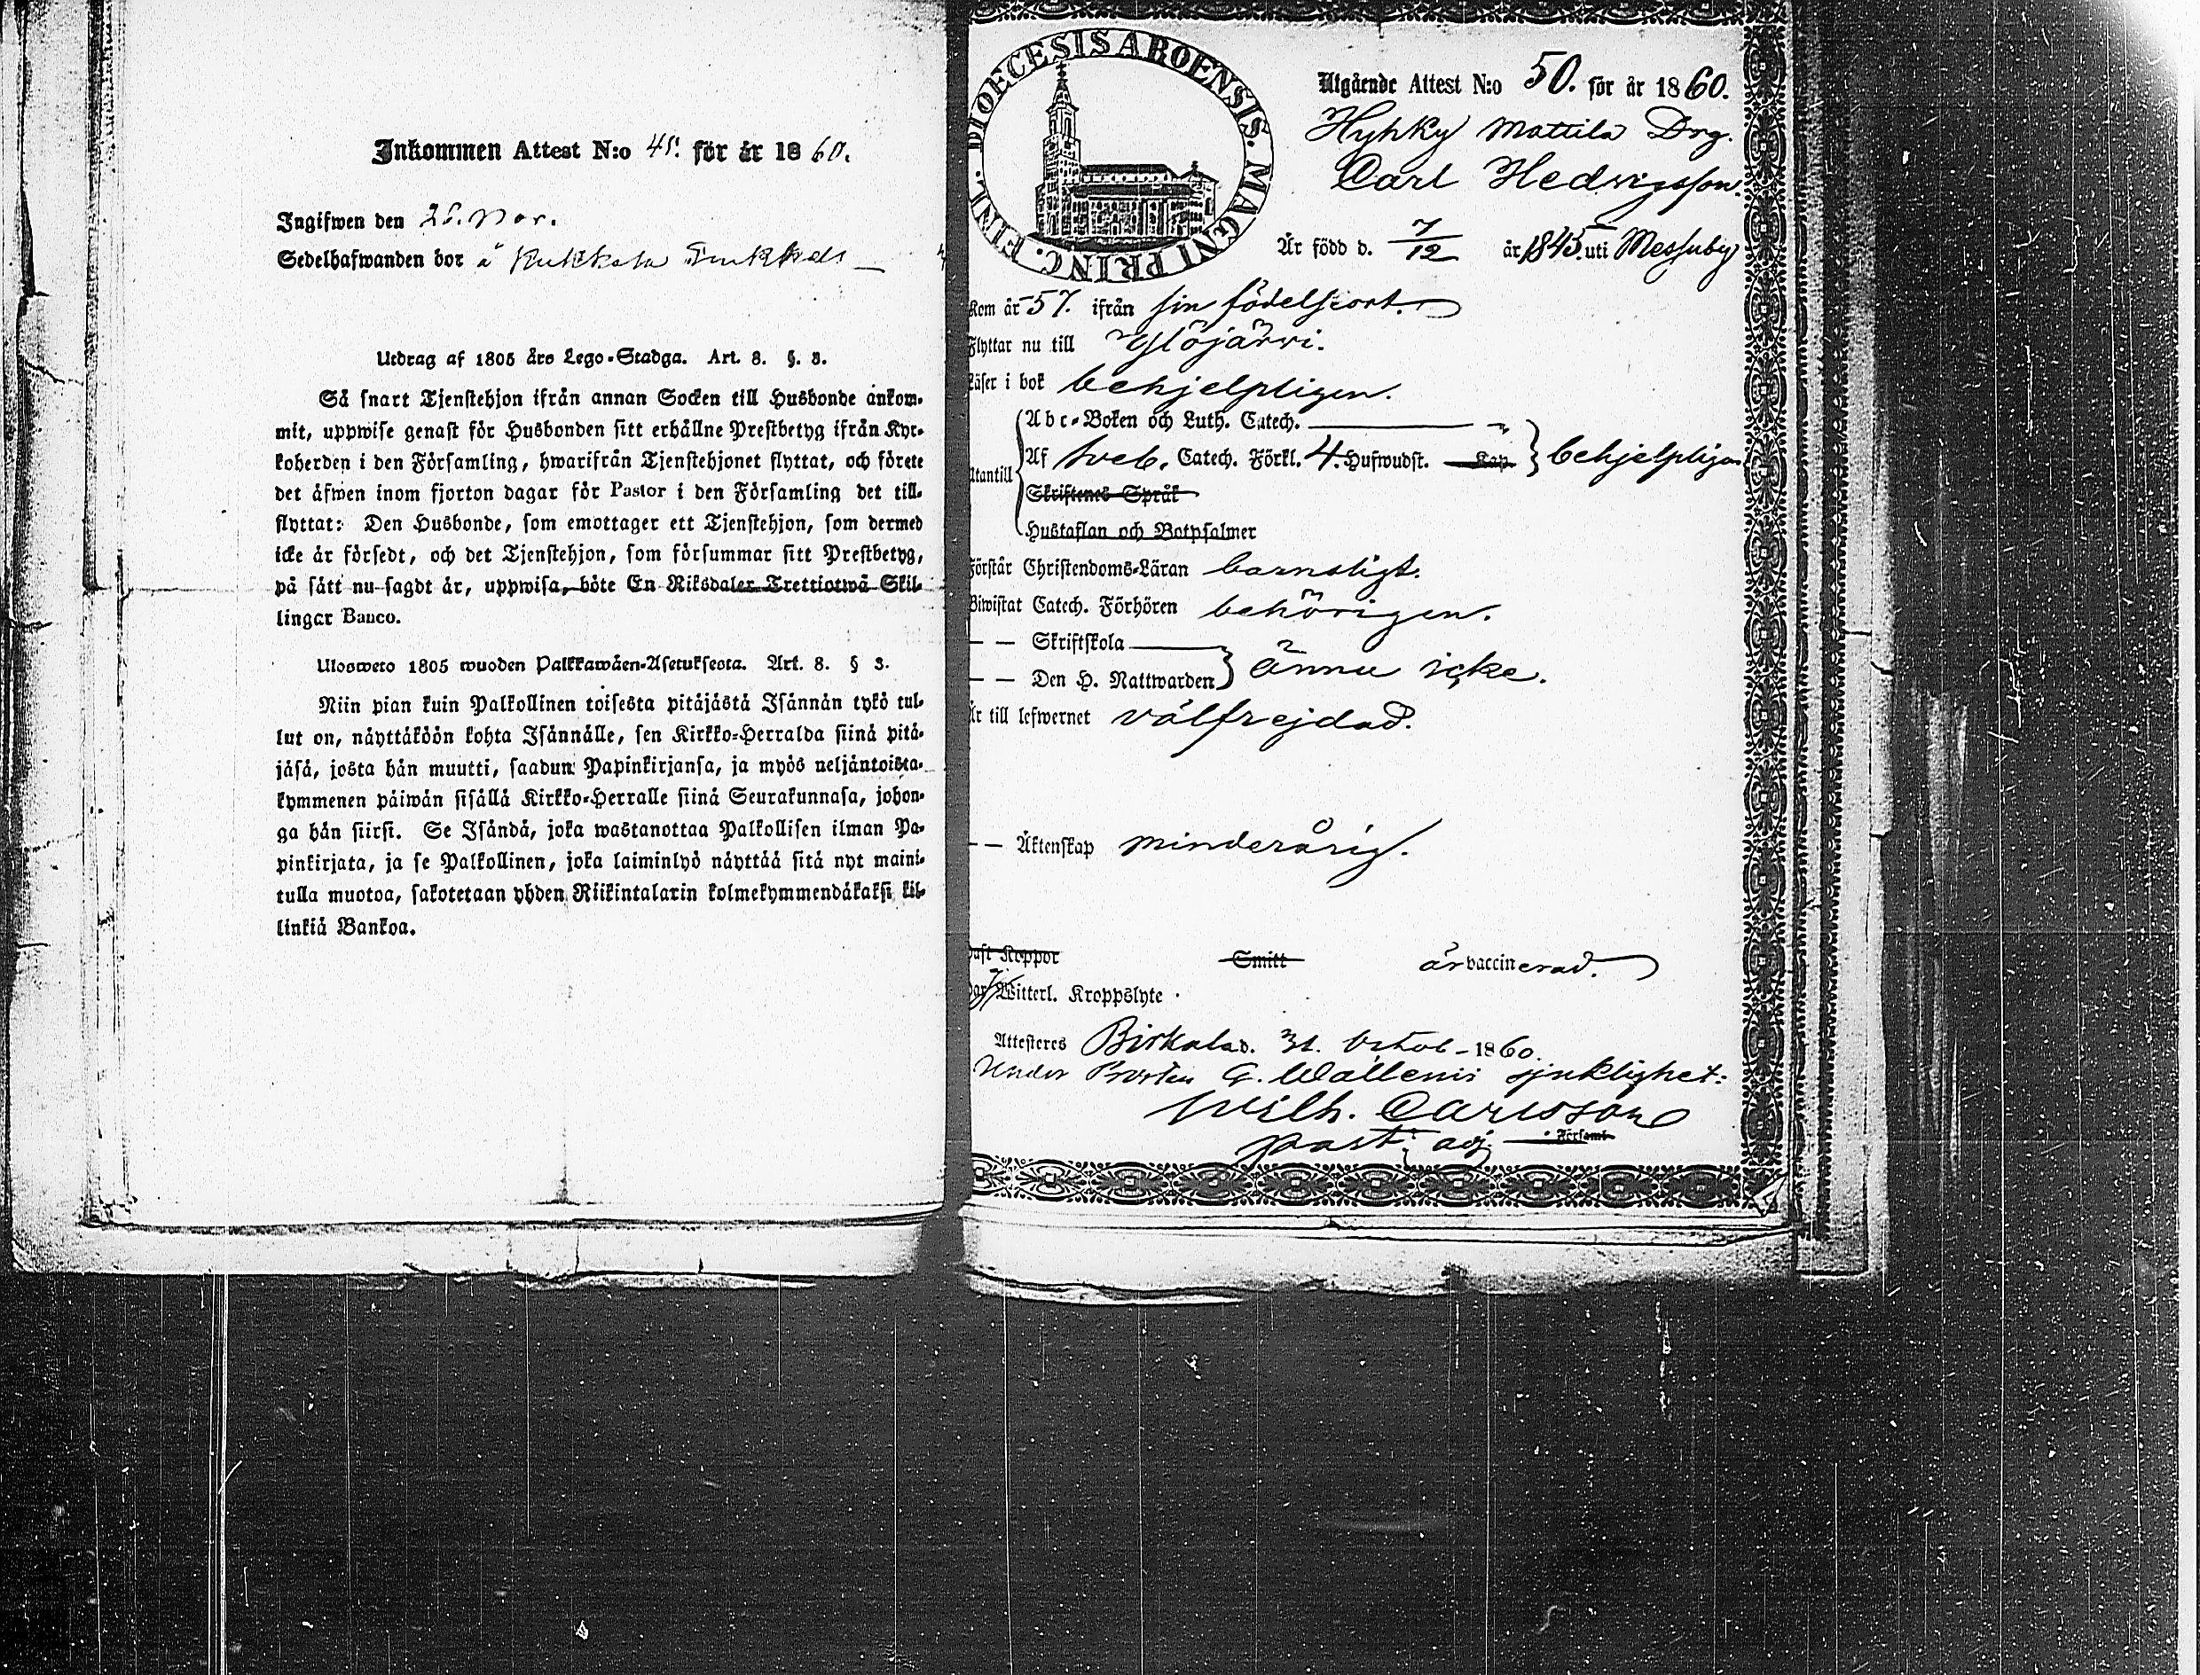 Inkommen Attest N:o 45. för år 1860.
Ingifwen den 26. Nov.
Sedelhafwanden bor å Kukkola
Utdrag af 1805 års Lego-Stadga. Art. 8. §. 3.
Så snart Tjenstehjon ifrån annan Socken till Husbonde ankom-
mit, uppwise genast för Husbonden sitt erhållne Prestbetyg ifrån Kyr-
koherden i den Församling, hwarifrån Tjenstehjonet flyttat, och förete
det äfwen inom fjorton dagar för Pastor i den Församling det till-
flyttat: Den Husbonde, som emottager ett Tjenstehjon, som dermed
icke är försedt, och det Tjenstehjon, som försummar sitt Prestbetyg,
på sätt nu sagdt är, uppwisa, böte En Riksdaler Trettiotwå Skil-
lingar Banco.
Ulosweto 1805 wuoden Palkkawäen-Asetuksesta. Art. 8. § 3.
Niin pian kuin Palkollinen toisesta pitäjästä Isännän tykö tul-
lut on, näyttäköön kohta Isännälle, sen Kirkko-Herralda siinä pitä-
jäsä, josta hän muutti, saadun Papinkirjansa, ja myös neljäntoista-
kymmenen päiwän sisällä Kirkko-Herralle siinä Seurakunnasa, johon-
ga hän siirsi. Se Isändä, joka wastanottaa Palkollisen ilman Pa-
pinkirjata, ja se Palkollinen, joka laiminlyö näyttää sitä nyt maini-
tulla muotoa, sakotetaan yhden Riikintalarin kolmekymmendäkaksi kil-
linkiä Bankoa.
DIOECESIS ABOENSIS. MAGNI PRINC. FINL.
Utgående Attest N:o 50. för år 1860.
Hyhky Mattila Drg.
Carl Hedvigsson.
Är född d. 7/12 år 1845. uti Messuby
Kom år 57. ifrån sin födelseort.
Flyttar nu till Ylöjärvi.
Läser i bok behjelpligen.
Abc-Boken och Luth. Catech.
Utantill Af Sveb. Catech. Förkl. 4. Hufwudst. Kap. behjelpligen
Skriftenes Språk
Hustaflan och Botpsalmer
Förstår Christendoms-Läran barnsligt.
Biwistat Catech. Förhören behörigen.
— — Skriftskola
— — Den H. Nattwarden ännu icke.
Är till lefwernet välfrejdad.
— — Äktenskap minderårig.
Haft Koppor Smitt är vaccinerad.
Har Witterl. Kroppslyte
Attesteres Birkala d. 31. Octob. 1860.
Under Prosten G. Wallenii sjuklighet:
Wilh. Carlsson
past. adj. Församl.